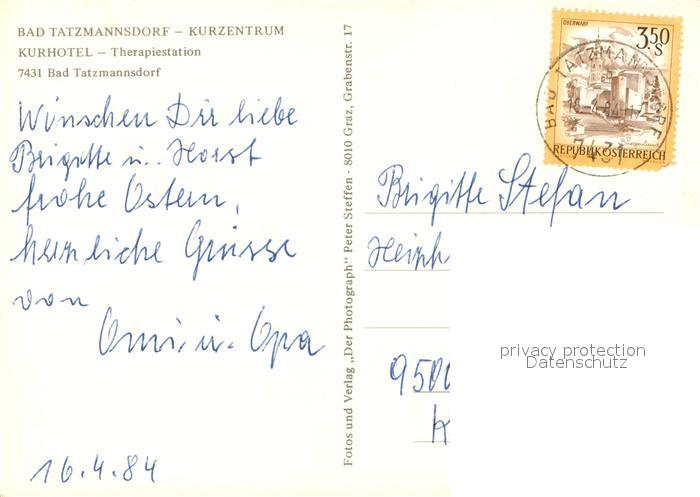 BAD TATZMANNSDORF – KURZENTRUM
KURHOTEL – Therapiestation
7431 Bad Tatzmannsdorf
Wünschen Dir liebe
Brigitte u. Horst
frohe Ostern,
herzliche Grüsse
von
Omi. u. Opa
16.4.84
Fotos und Verlag „Der Photograph" Peter Steffen - 8010 Graz, Grabenstr. 17
OBERWART
3.50
S
REPUBLIK ÖSTERREICH
BAD TATZMANNSDORF
7431
Brigitte Stefan
950
K
privacy protection
Datenschutz